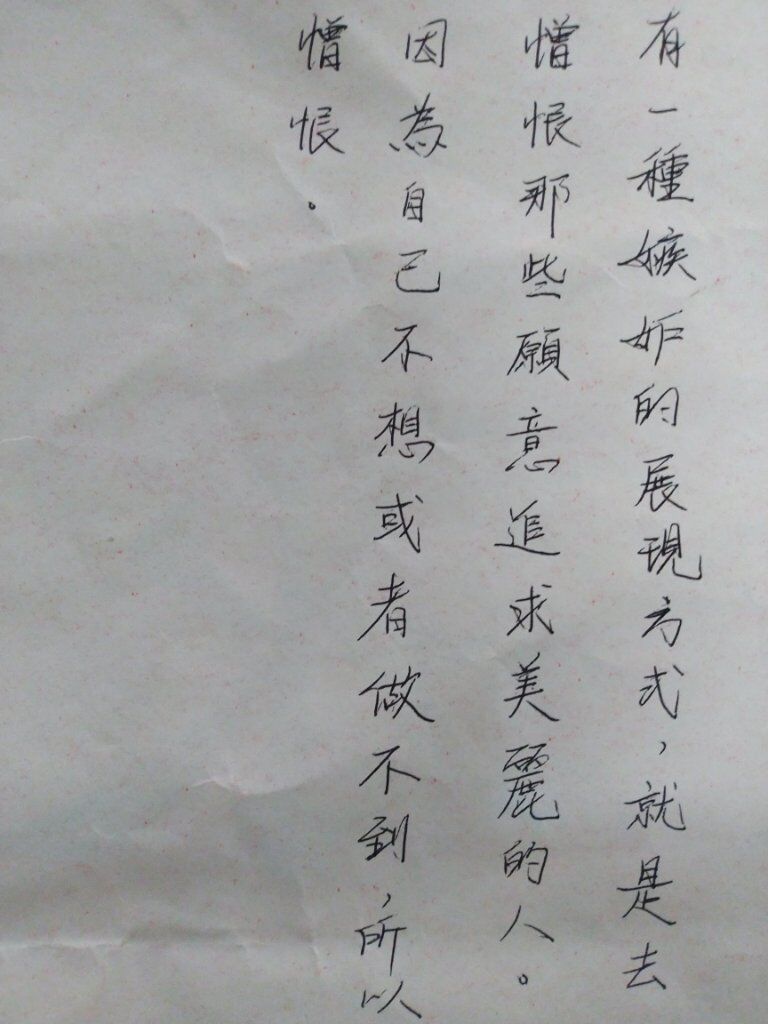 有一種嫉妒的展現方式，就是去
憎恨那些願意追求美麗的人。
因為自己不想或者做不到，所以
憎恨。